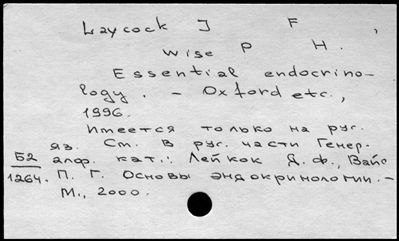 Laycock J F,
Wise P H.
Essential endocrino-
logy. - Oxford etc.,
1996.
Имеется только на рус.
яз. См. в рус. части Генер.
алф. кат.: Лейкок Д. Ф., Вайс
П. Г. Основы эндокринологии. -
М., 2000.
Б2
1264.